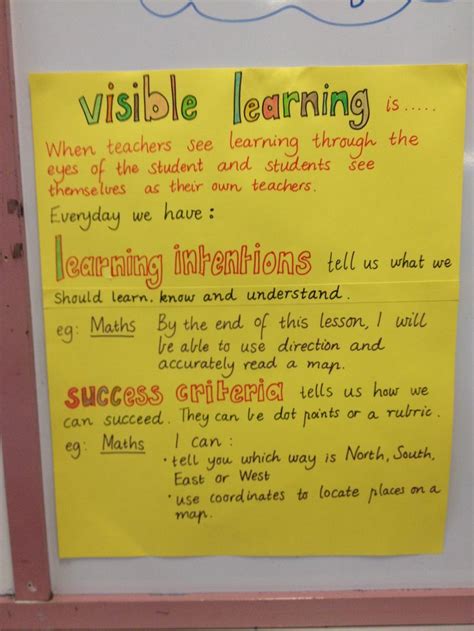 visible learning is.....
When teachers see learning through the
eyes of the student and students see
themselves as their own teachers.
Everyday we have:
learning intentions tell us what we
should learn, know and understand.
eg: Maths By the end of this lesson, I will
be able to use direction and
accurately read a map.
success criteria tells us how we
can succeed. They can be dot points or a rubric.
eg: Maths I can:
• tell you which way is North, South,
East or West
• use coordinates to locate places on a
map.